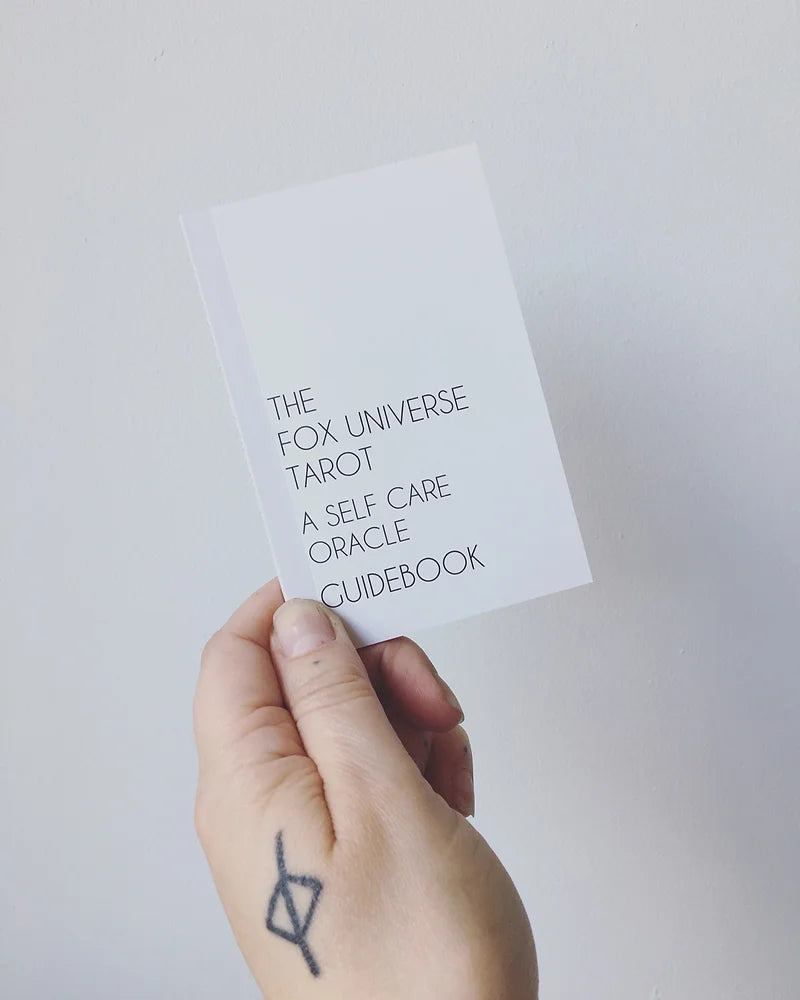 THE
FOX UNIVERSE
TAROT
A SELF CARE
ORACLE
GUIDEBOOK